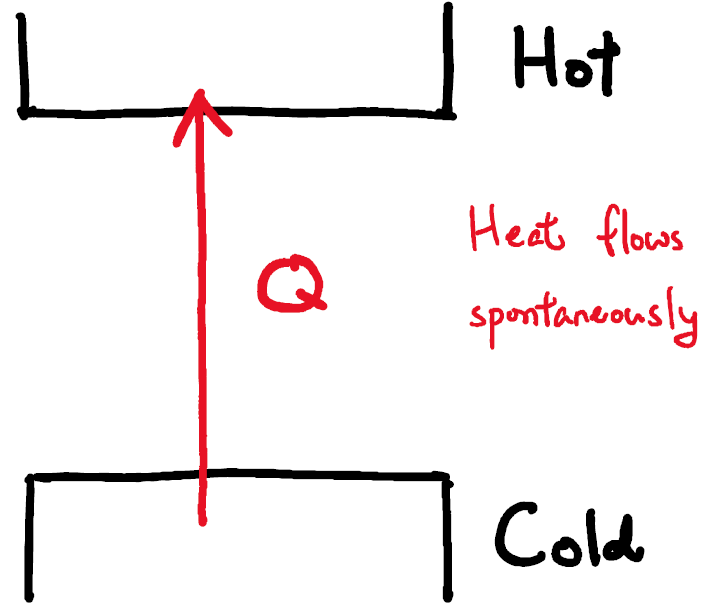 Hot
Heat flows
spontaneously
Q
Cold